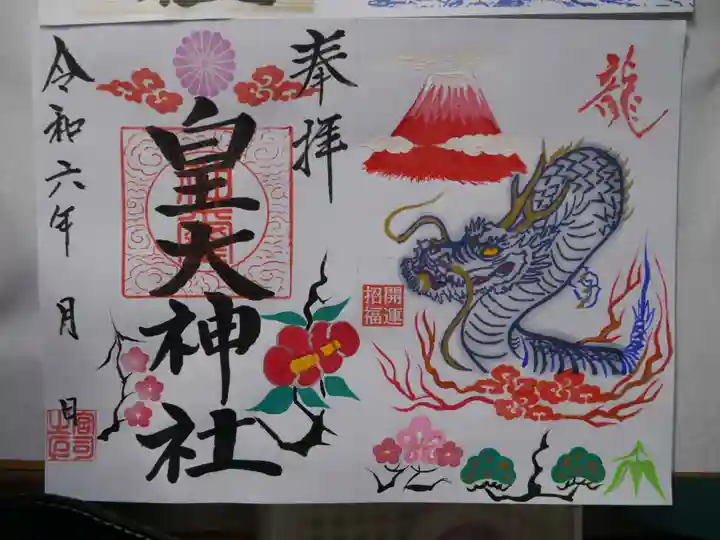 奉拝
皇大神社
令和六年 月 日
龍
開運
招福